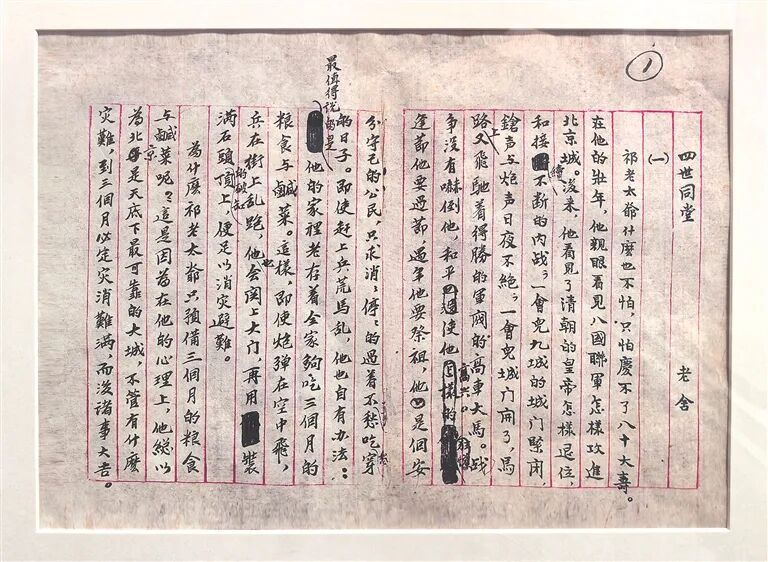 1
四世同堂 老舍
(一)
祁老太爺什麼也不怕,只怕慶不了八十大壽。
在他的壯年,他親眼看見八國聯軍怎樣攻進
北京城。後来,他看見了清朝的皇帝怎樣退位,
和接續不断的内战;一會兒九城的城门緊闭
鎗声与炮声日夜不絶;一會兒城门開了,馬
路上又飛馳着得勝的軍阀的高車大馬。战
争没有嚇倒他,和平使他高兴。
逢節他要過節,過年他要祭祖,他是個安
分守己的公民,只求消消停停的過着不愁吃穿
的日子。即使赶上兵荒馬乱,他也自有办法:
最值得説的是他的家裡老存着全家夠吃三個月的
粮食与鹹菜。這樣,即使炮弹在空中飛,
兵在街上乱跑,他也会関上大门,再用裝
满石頭的破缸頂上,便足以消灾避難。
為什麼祁老太爺只預備三個月的粮食
与鹹菜呢?這是因為在他的心理上,他総以
為北京是天底下最可靠的大城,不管有什麼
灾難,到三個月必定灾消難满,而後諸事大吉。